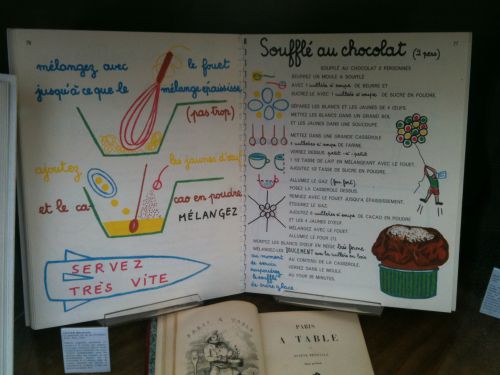 76
mélangez avec le fouet
jusqu'à ce que le mélange épaississe
(pas trop)
ajoutez les jaunes d'œufs
et le ca- cao en poudre
MÉLANGEZ
SERVEZ
TRÈS VITE
77
Soufflé au chocolat (2 pers)
SOUFFLÉ AU CHOCOLAT 2 PERSONNES
BEURREZ UN MOULE A SOUFFLÉ
AVEC 1 cuillerée à soupe DE BEURRE ET
SUCREZ-LE AVEC 1 cuillerée à soupe DE SUCRE EN POUDRE.
SÉPAREZ LES BLANCS ET LES JAUNES DE 4 ŒUFS.
METTEZ LES BLANCS DANS UN GRAND BOL
ET LES JAUNES DANS UNE SOUCOUPE.
METTEZ DANS UNE GRANDE CASSEROLE
1 cuillerée à soupe DE FARINE
VERSEZ DESSUS petit-à-petit
1 1/2 TASSE DE LAIT EN MÉLANGEANT AVEC LE FOUET.
AJOUTEZ 1/2 TASSE DE SUCRE EN POUDRE.
ALLUMEZ LE GAZ (feu fort)
POSEZ LA CASSEROLE DESSUS.
REMUEZ AVEC LE FOUET JUSQU'A ÉPAISSISSEMENT.
ÉTEIGNEZ LE GAZ
AJOUTEZ 6 cuillerées à soupe DE CACAO EN POUDRE
ET LES 4 JAUNES D'ŒUF.
MÉLANGEZ AVEC LE FOUET
ALLUMEZ LE FOUR (7)
BATTEZ LES BLANCS D'ŒUF EN NEIGE très ferme
MÉLANGEZ-LES DOUCEMENT avec la cuillère en bois
AU CONTENU DE LA CASSEROLE.
VERSEZ DANS LE MOULE
AU FOUR 18 MINUTES.
au moment
de servir
saupoudrez
le soufflé
de sucre glace
PARIS A TABLE
PARIS
A TABLE